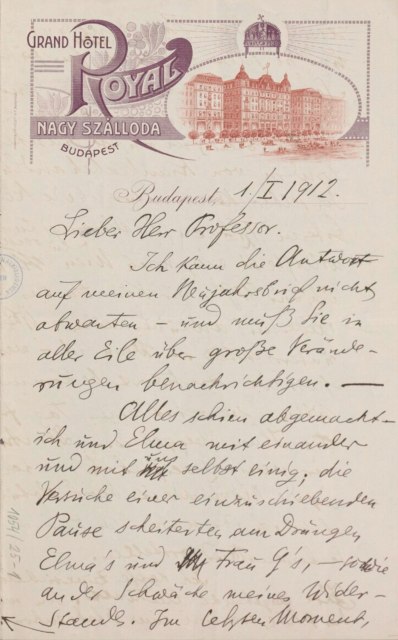 GRAND HÔTEL
ROYAL
NAGY SZÁLLODA
BUDAPEST
Budapest, 1/I 1912.
Lieber Herr Professor.
Ich kann die Antwort
auf meinen Neujahrsbrief nicht
abwarten – und muß Sie in
aller Eile über große Verände-
rungen benachrichtigen. —
Alles schien abgemacht –
ich und Elma mit einander
und mit uns selbst einig; die
Versuche einer einzuschiebenden
Pause scheiterten am Drängen
Elma's und Frau G's, – sowie
an der Schwäche meines Wider-
stands. Im letzten Moment,